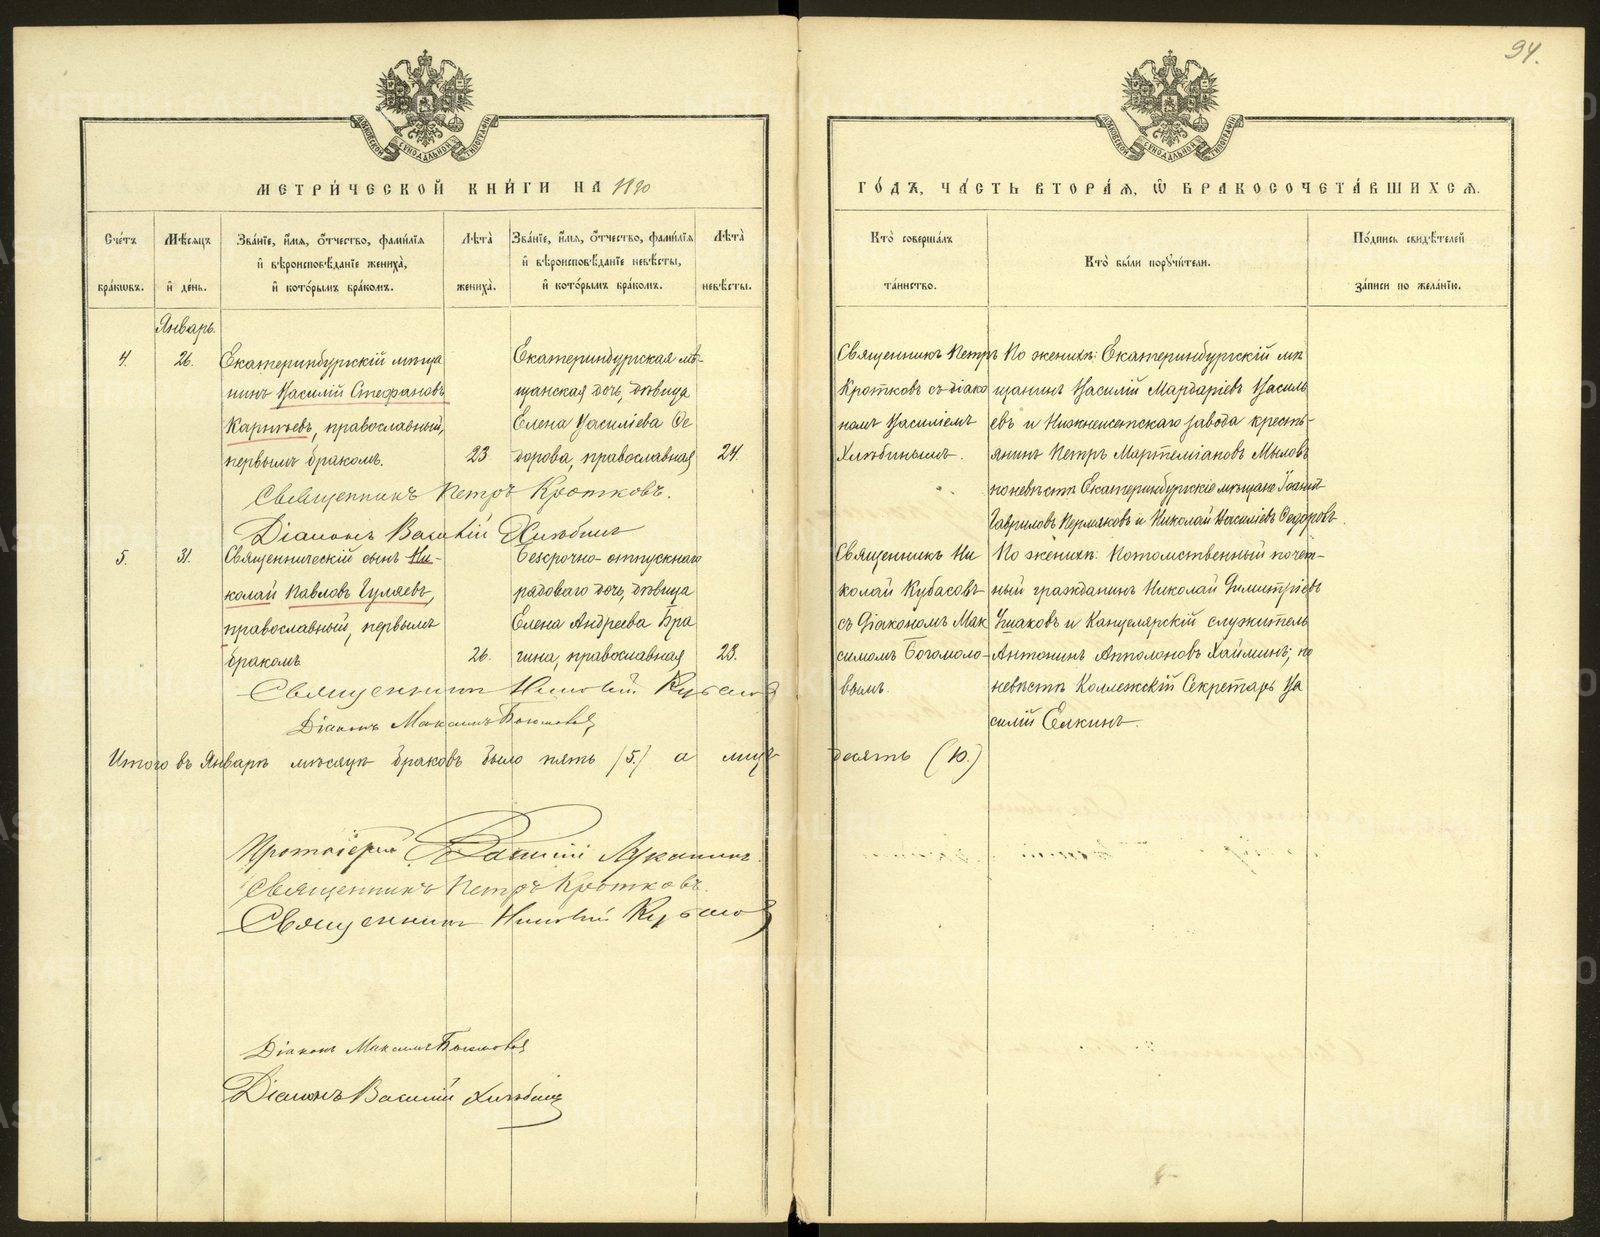 94.
МОСКОВСКОЙ СѴНОДАЛЬНОЙ ТИПОГРАФІИ
МОСКОВСКОЙ СѴНОДАЛЬНОЙ ТИПОГРАФІИ
МЕТРИ́ЧЕСКОЙ КНИ́ГИ НА 1890
ГО́ДЪ, ЧА́СТЬ ВТОРА́Я, Ѡ҆ БРАКОСОЧЕТА́ВШИХСѦ.
Сче́тъ бра́кѡвъ.
Мѣ́сяцъ и҆ де́нь.
Зва́нїе, и҆́мѧ, ѻ҆́тчество, фами́лїѧ и҆ вѣроисповѣ́данїе жениха̀, и҆ кото́рымъ бра́комъ.
Лѣ́та жениха̀.
Зва́нїе, и҆́мѧ, ѻ҆́тчество, фами́лїѧ и҆ вѣроисповѣ́данїе невѣ́сты, и҆ кото́рымъ бра́комъ.
Лѣ́та невѣ́сты.
Кто̀ соверша́лъ та́инство.
Кто̀ бы́ли порꙋчи́тели.
По́дпись свидѣ́телей за́писи по жела́нїю.
Январь.
4. 26.
Екатеринбургскій мѣща
нинъ Василій Стефановъ
Карпѣевъ, православный,
первымъ бракомъ. 23
Екатеринбургская мѣ-
щанская дочь, дѣвица
Елена Василіева Ѳе
дорова, православная 24.
Священникъ Петръ
Кротковъ съ діако
номъ Василіемъ
Хлѣбинымъ.
По женихѣ: Екатеринбургскій мѣ
щанинъ Василій Мардаріевъ Василь
евъ и Нижнеисетскаго завода кресть-
янинъ Петръ Мартеміановъ Мыловъ
по невѣстѣ Екатеринбургскіе мѣщане Іоаннъ
Гавриловъ Пермяковъ и Николай Василіевъ Ѳедоровъ.
Священникъ Петръ Кротковъ.
Діаконъ Василій Хлѣбинъ
5. 31.
Священническій сынъ Ни-
колай Павловъ Гуляевъ,
православный, первымъ
бракомъ 26.
Безсрочно-отпускнаго
рядоваго дочь, дѣвица
Елена Андреева Бра
гина, православная 23.
Священникъ Ни
колай Кубасовъ
съ Діакономъ Мак
симомъ Богомоло-
вымъ.
По женихѣ: Потомственный почет-
ный гражданинъ Николай Димитріевъ
Ушаковъ и Канцелярскій служитель
Антонинъ Апполоновъ Хайминъ; по
невѣстѣ Коллежскій Секретарь Ва
силій Елкинъ.
Священникъ Николай Кубасов
Діаконъ Максимъ Богомолов
Итого въ Январѣ мѣсяцѣ браковъ было пять (5.) а лицъ десять (10.)
Протоіерей Василій Луканинъ.
Священникъ Петръ Кротковъ.
Священникъ Николай Кубасов
Діаконъ Максимъ Богомолов
Діаконъ Василій Хлѣбинъ